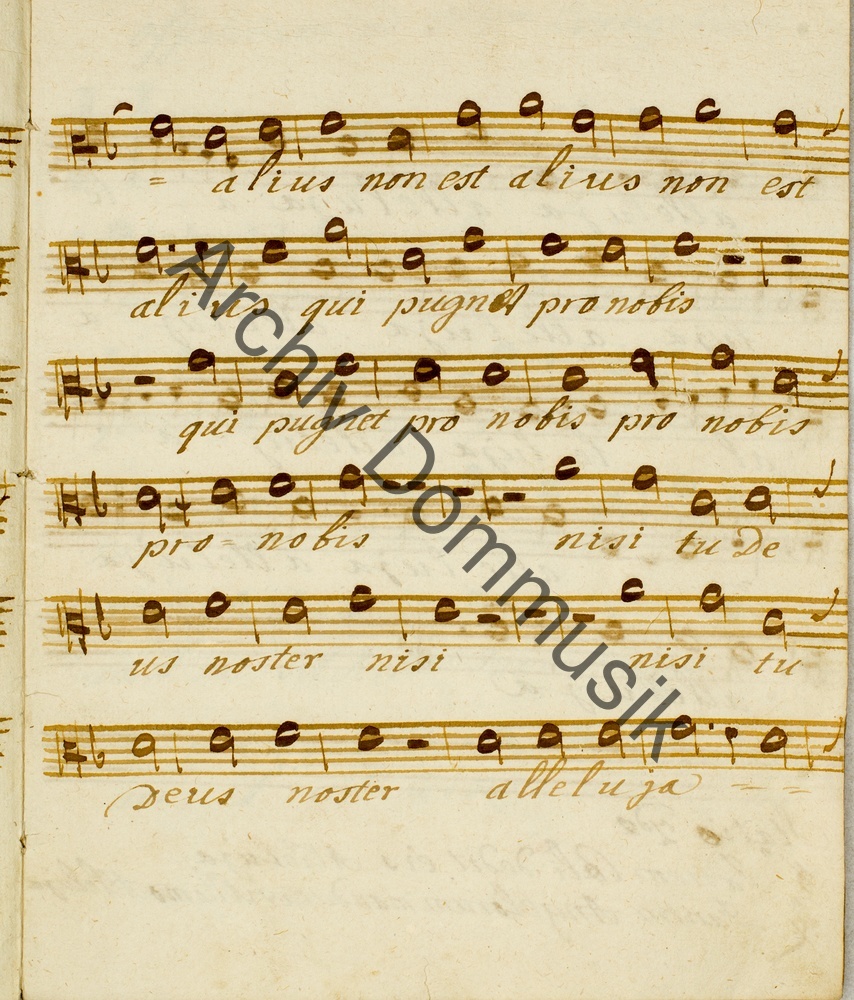 = alius non est alius non est
alius qui pugnet pro nobis
qui pugnet pro nobis pro nobis
pro = nobis nisi tu De
us noster nisi nisi tu
Deus noster alleluja = =
Archiv Dommusik